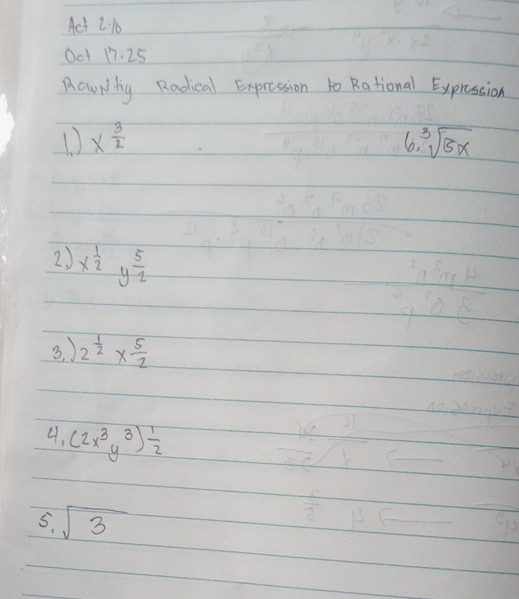 Act 2.1b
Oct 17.25
Rewritig Radical Expression to Rational Expression
1.) x^(3/2)
6. ³√5x
2.) x^(1/2) y^(5/2)
3.) 2^(1/2) x^(5/2)
4. (2x³y³)^(1/2)
5. √3